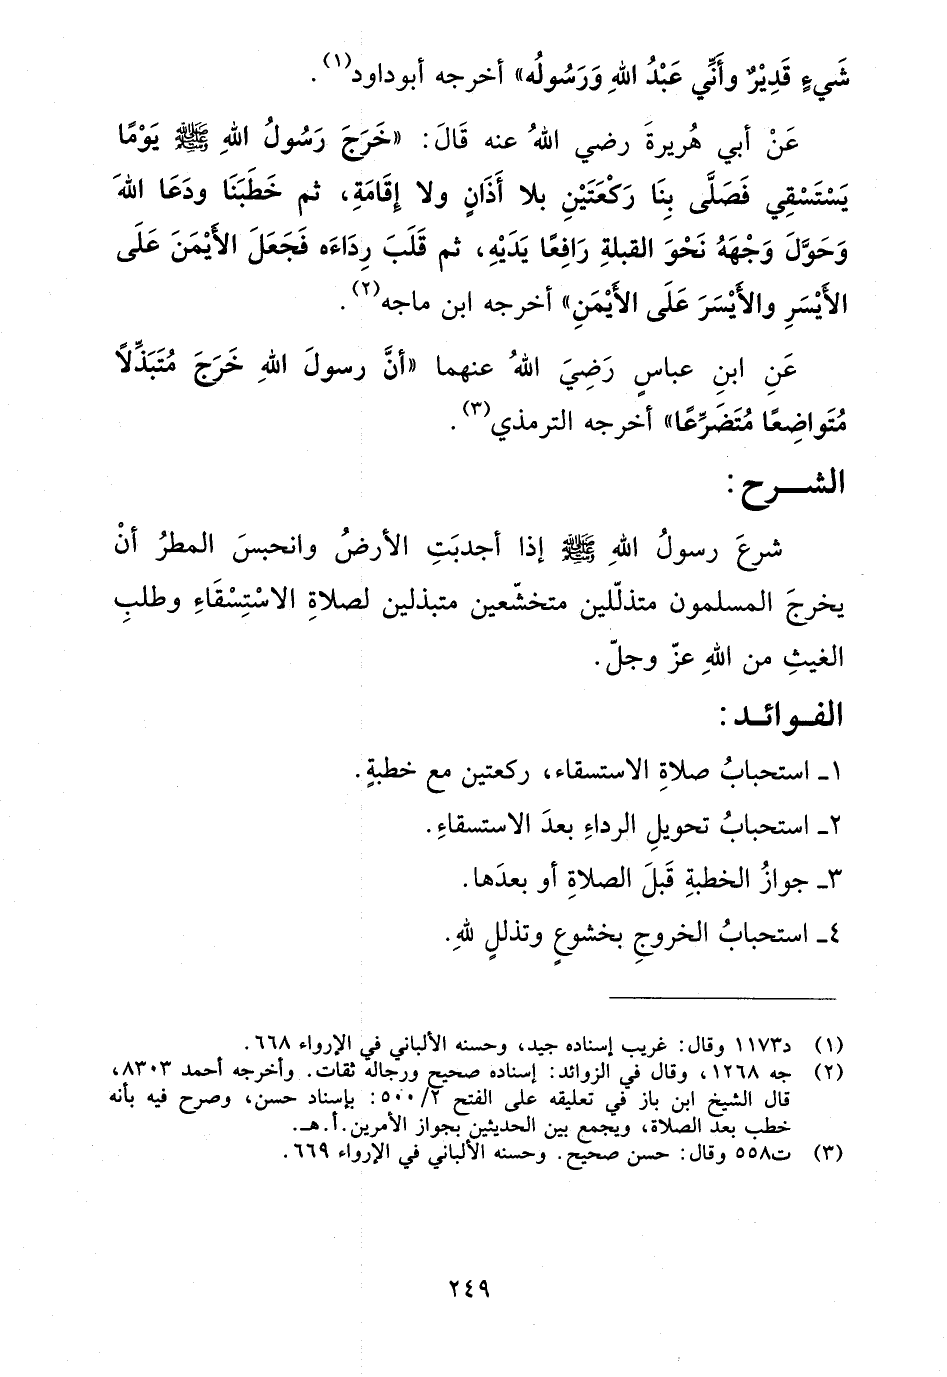 شَيءٍ قَدِيْرٌ وأَنِّي عَبْدُ اللهِ وَرَسُولُه» أخرجه أبوداود(١).
عَنْ أبي هُريرةَ رضي اللهُ عنه قَالَ: «خَرَجَ رَسُولُ اللهِ ﷺ يَوْمًا
يَسْتَسْقِي فَصَلَّى بِنَا رَكْعَتَيْنِ بلا أَذَانٍ ولا إِقَامَةِ، ثم خَطَبَنَا ودَعَا اللهَ
وَحَوَّلَ وَجْهَهُ نَحْوَ القبلةِ رَافِعًا يَدَيْهِ، ثم قَلَبَ رِدَاءَه فَجَعَلَ الأَيْمَنَ عَلَى
الأَيْسَرِ والأَيْسَرَ عَلَى الأَيْمَنِ» أخرجه ابن ماجه(٢).
عَنِ ابنِ عباسٍ رَضِيَ اللهُ عنهما «أنَّ رسولَ اللهِ خَرَجَ مُتَبَذِّلاً
مُتَواضِعًا مُتَضَرِّعًا» أخرجه الترمذي(٣).
الشـــرح:
شرعَ رسولُ اللهِ ﷺ إذا أجدبَتِ الأرضُ وانحبسَ المطرُ أنْ
يخرجَ المسلمون متذلّلين متخشّعين متبذلين لصلاةِ الاسْتِسْقَاءِ وطلبِ
الغيثِ من اللهِ عزّ وجلّ.
الفـوائـد:
١ـ استحبابُ صلاةِ الاستسقاء، ركعتين مع خطبةٍ.
٢ـ استحبابُ تحويلِ الرداءِ بعدَ الاستسقاءِ.
٣ـ جوازُ الخطبةِ قَبلَ الصلاةِ أو بعدَها.
٤ـ استحبابُ الخروجِ بخشوعٍ وتذللٍ للهِ.
(١) د١١٧٣ وقال: غريب إسناده جيد، وحسنه الألباني في الإرواء ٦٦٨.
(٢) جه ١٢٦٨، وقال في الزوائد: إسناده صحيح ورجاله ثقات. وأخرجه أحمد ٨٣٠٣،
قال الشيخ ابن باز في تعليقه على الفتح ٥٠٠/٢: بإسناد حسن، وصرح فيه بأنه
خطب بعد الصلاة، ويجمع بين الحديثين بجواز الأمرين.أ.هـ.
(٣) ت٥٥٨ وقال: حسن صحيح. وحسنه الألباني في الإرواء ٦٦٩.
٢٤٩